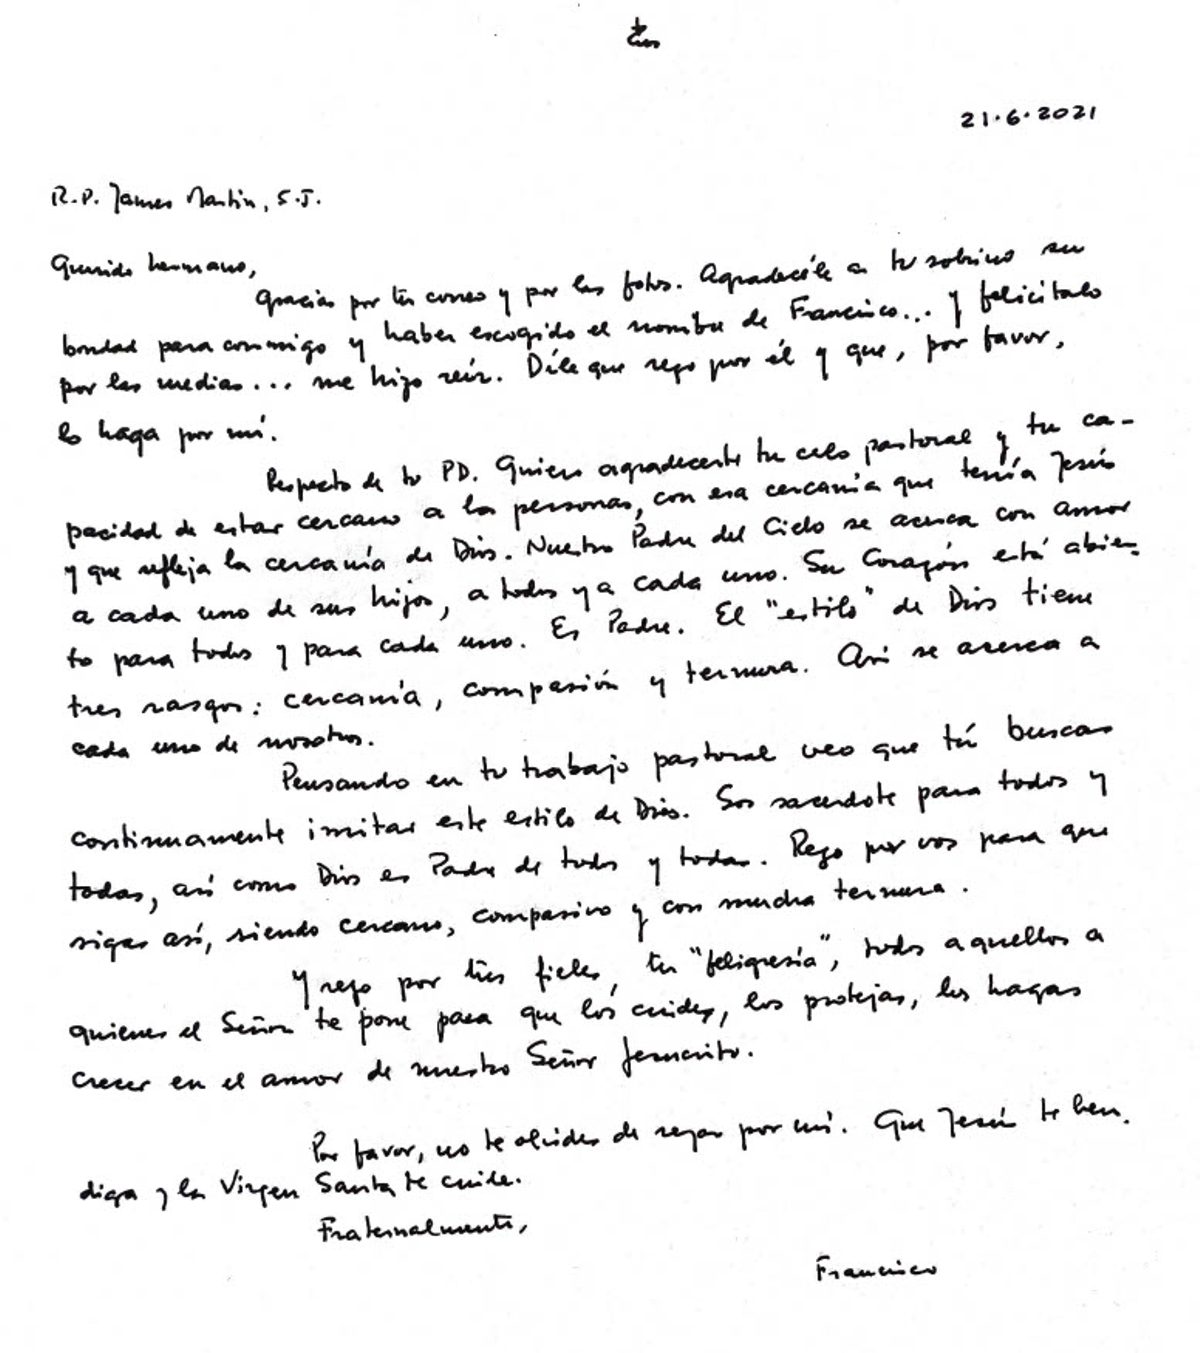 21.6.2021
R.P. James Martin, S.J.
Querido hermano,
gracias por tu correo y por las fotos. Agradecéle a tu sobrino su
bondad para conmigo y haber escogido el nombre de Francisco... y felicitalo
por las medias... me hizo reír. Díle que rezo por él y que, por favor,
lo haga por mí.
Respecto de tu PD. Quiero agradecerte tu celo pastoral y tu ca-
pacidad de estar cercano a las personas, con esa cercanía que tenía Jesús
y que refleja la cercanía de Dios. Nuestro Padre del Cielo se acerca con amor
a cada uno de sus hijos, a todos y a cada uno. Su Corazón está abier-
to para todos y para cada uno. Es Padre. El "estilo" de Dios tiene
tres rasgos: cercanía, compasión y ternura. Así se acerca a
cada uno de nosotros.
Pensando en tu trabajo pastoral veo que tú buscas
continuamente imitar este estilo de Dios. Sos sacerdote para todos y
todas, así como Dios es Padre de todos y todas. Rezo por vos para que
sigas así, siendo cercano, compasivo y con mucha ternura.
Y rezo por tus fieles, tu "feligresía", todos aquellos a
quienes el Señor te pone para que los cuides, los protejas, los hagas
crecer en el amor de nuestro Señor Jesucristo.
Por favor, no te olvides de rezar por mí. Que Jesús te ben.
diga y la Virgen Santa te cuide.
Fraternalmente,
Francisco